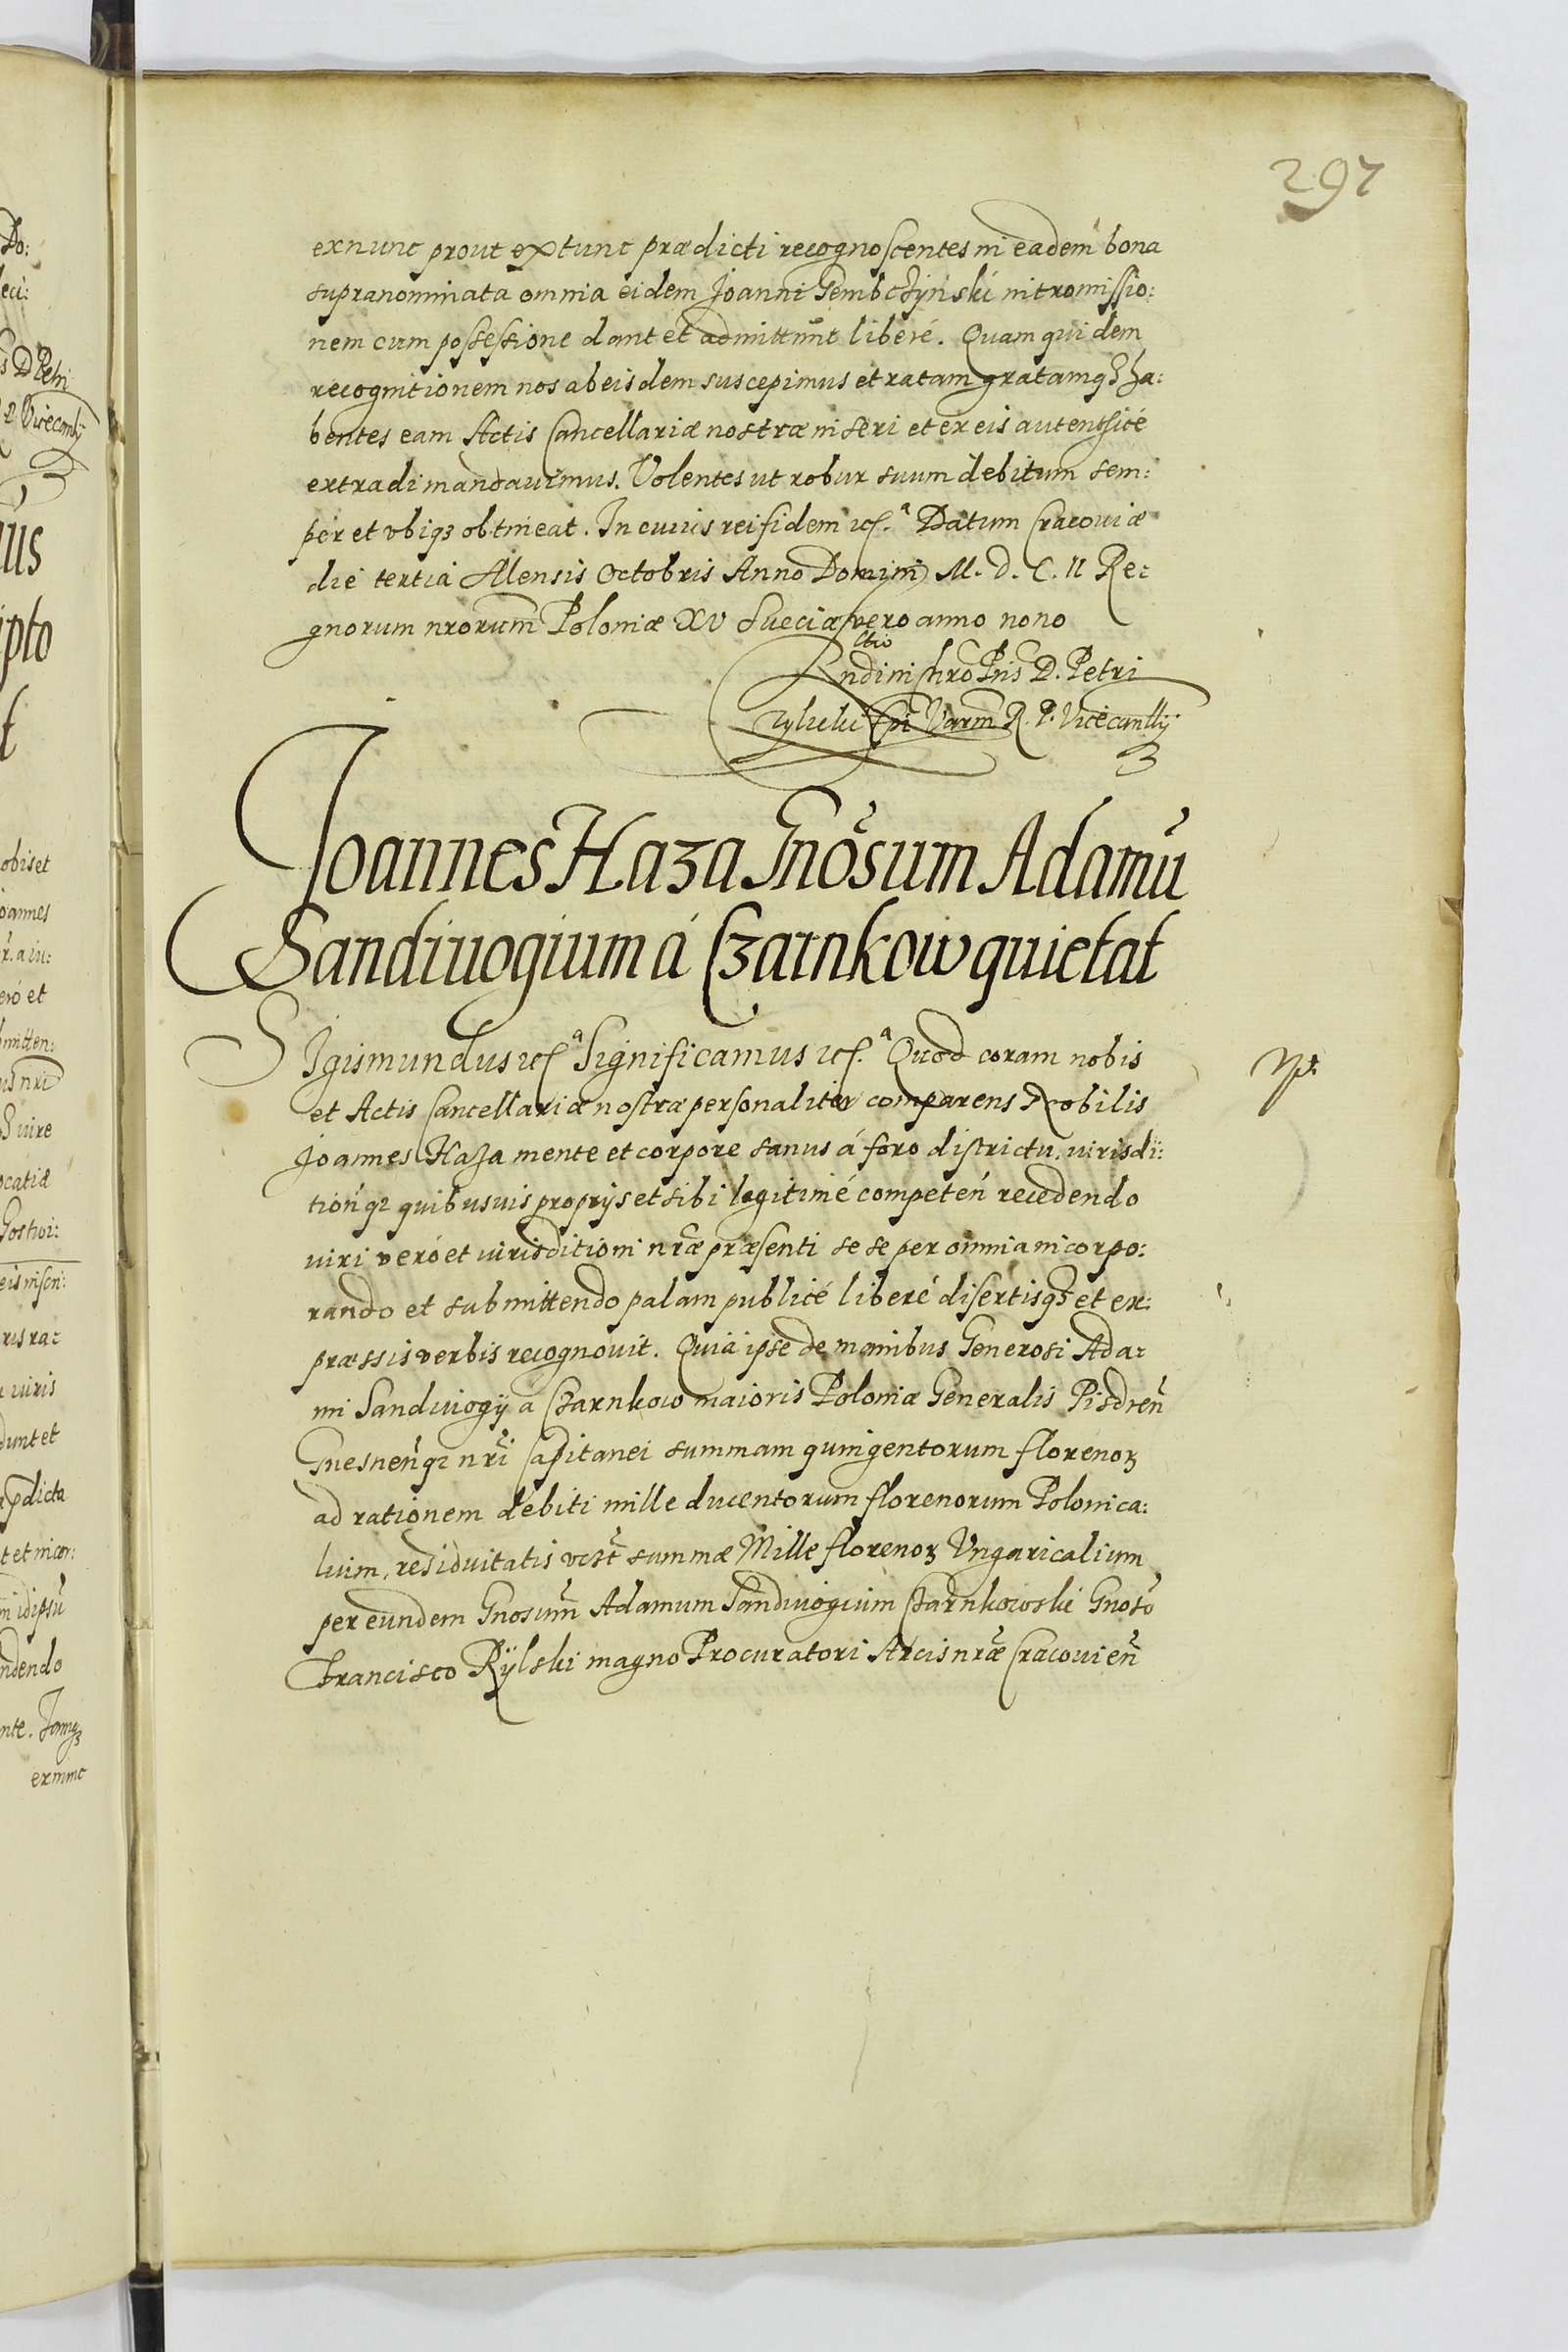 297
exnunc prout extunc prædicti recognoscentes in eadem bona
supranominata omnia eidem Joanni Gembczÿnski intromissio:
nem cum possessione dant et admittunt liberé. Quam quidem
recognitionem nos ab eisdem suscepimus et ratam gratamq₃ ha:
bentes eam Actis Cancellariæ nostræ inseri et ex eis autenticé
extradi mandavimus. Volentes ut robur suum debitum sem:
per et vbiq₃ obtineat. In cuius rei fidem etc.ª Datum Cracoviæ
die tertia Mensis Octobris Anno Domini M. D. C. II Re:
gnorum nrorum Poloniæ XV Sueciæ vero anno nono
D. Petri
Tylicki Epi Varm R. P. Vicecancllÿ
Joannes Haza Gnosum Adamũ
Sandivogium á Czarnkow quietat
SIgismundus etc.ª Significamus etc.ª Quod coram nobis
et Actis Cancellariæ nostræ personaliter comparens Nobilis
Joannes Haza mente et corpore sanus á foro districtu. iurisdi:
tionq₃ quibusuis proprÿs et sibi legitimé competeñ recedendo
iuri veró et iurisditioni nræ præsenti sese per omnia incorpo:
rando et submittendo palam publicé liberé disertisq₃ et ex:
præssis verbis recognouit. Quia ipse de manibus Generosi Ada:
mi Sandiuogÿ a Czarnkow maioris Poloniæ Generalis Pisdreñ
Gnesneñq₃ nri Capitanei summam quingentorum florenoꝝ
ad rationem debiti mille ducentorum florenorum Polonica:
lium, residuitatis summæ Mille florenoꝝ Vngaricalium
per eundem Gnosum Adamum Sandiuogium Czarnkowski Gnoso
Francisco Rÿlski magno Procuratori Arcis nræ Cracouieñ